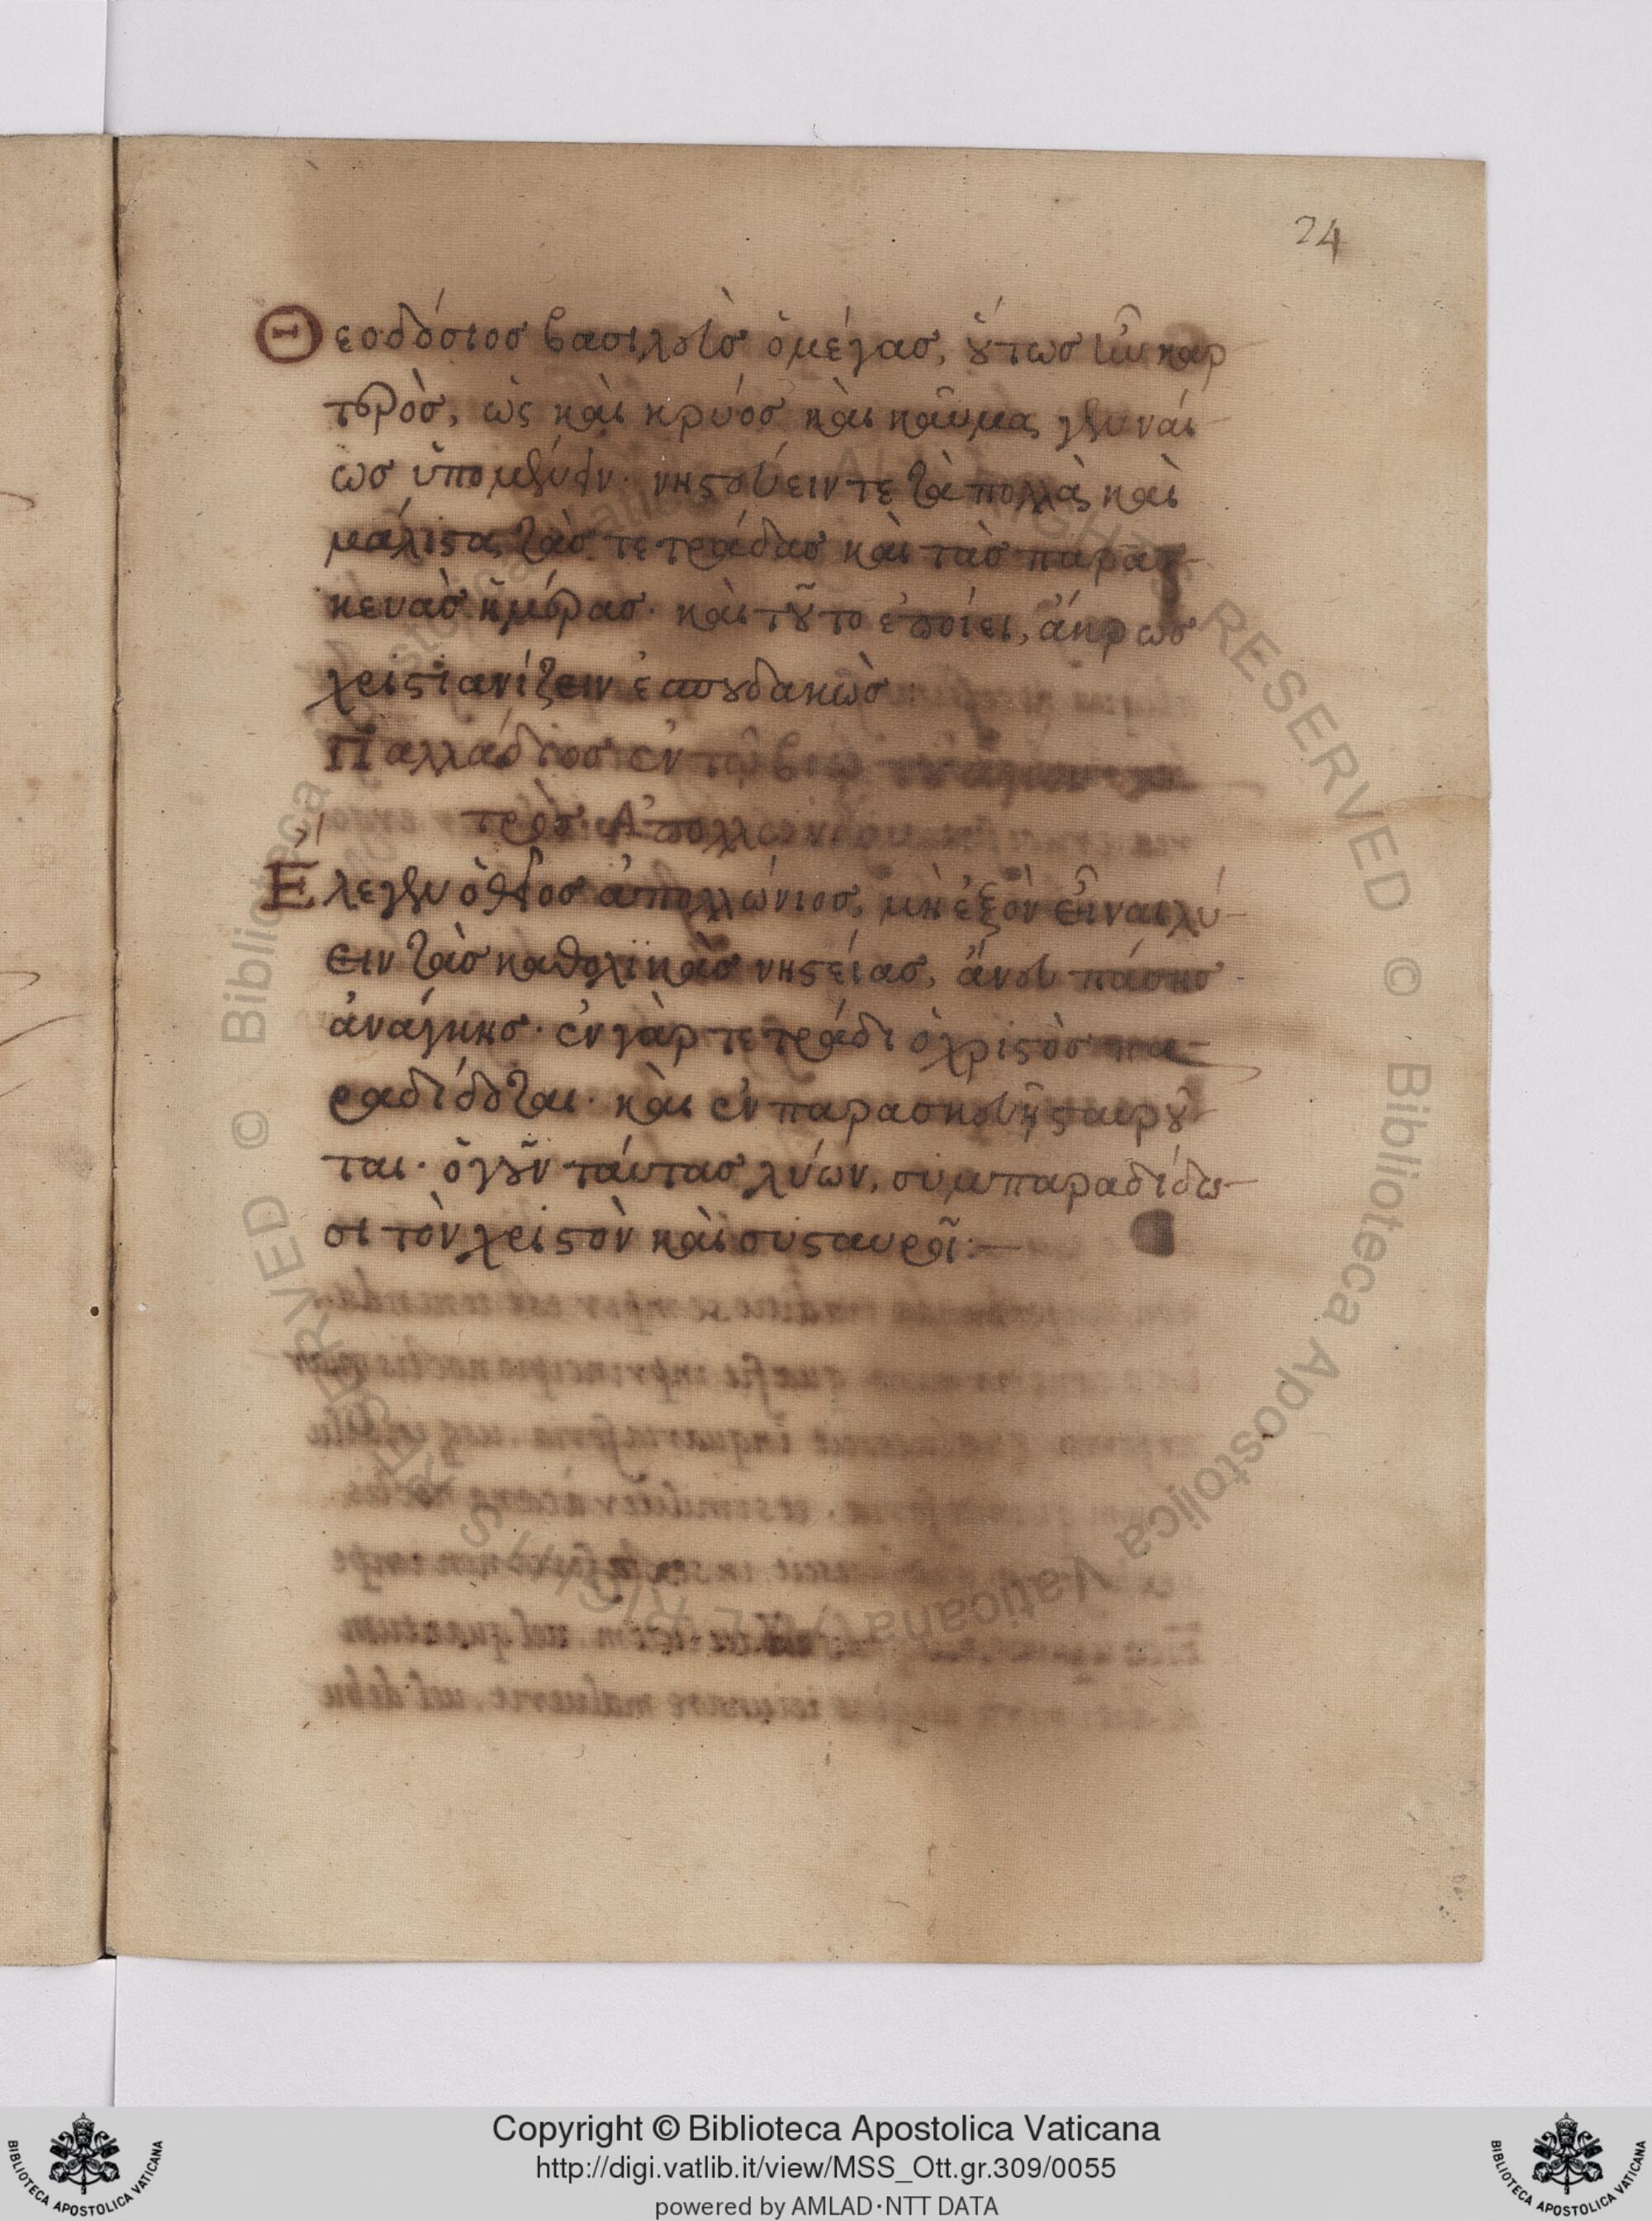 24
Θεοδόσιος βασιλεὺς ὁ μέγας, οὕτως ἦν καρ
τερὸς, ὡς καὶ κρύος καὶ καῦμα γενναί
ως ὑπομένειν· νηστεύειν τε τὰ πολλὰ καὶ
μάλιστα τὰς τετράδας καὶ τὰς παρασ
κευὰς ἡμέρας· καὶ τοῦτο ἐποίει, ἄκρως
χριστιανίζειν ἐσπουδακὼς
Παλλάδιος ἐν τῷ βίῳ τοῦ
τρὸς Ἀπολλω
Ἔλεγεν ὁ οὗτος ἀπολλώνιος, μὴ ἐξὸν εἶναι λύ
ειν τὰς καθολικὰς νηστείας, ἄνευ πάσης
ἀνάγκης· ἐν γὰρ τετράδι ὁ χριστὸς πα
ραδίδοται· καὶ ἐν παρασκευῇ σταυροῦ
ται· ὁ γοῦν ταύτας λύων, συμπαραδίδω
σι τὸν χριστὸν καὶ συσταυροῖ:
Copyright © Biblioteca Apostolica Vaticana
http://digi.vatlib.it/view/MSS_Ott.gr.309/0055
powered by AMLAD·NTT DATA
BIBLIOTECA APOSTOLICA VATICANA
BIBLIOTECA APOSTOLICA VATICANA